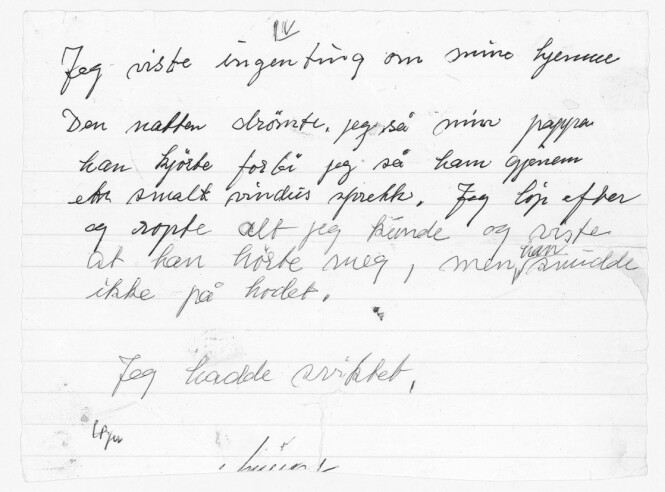 IV
Jeg viste ingenting om mine hjemme
Den natten drömte, jeg så min pappa
han kjörte forbi jeg så ham gjenem
smalt vindus sprekk. Jeg löp efter
og ropte alt jeg kunde og viste
at han hörte meg, men han snudde
ikke på hodet.
Jeg hadde sviktet.